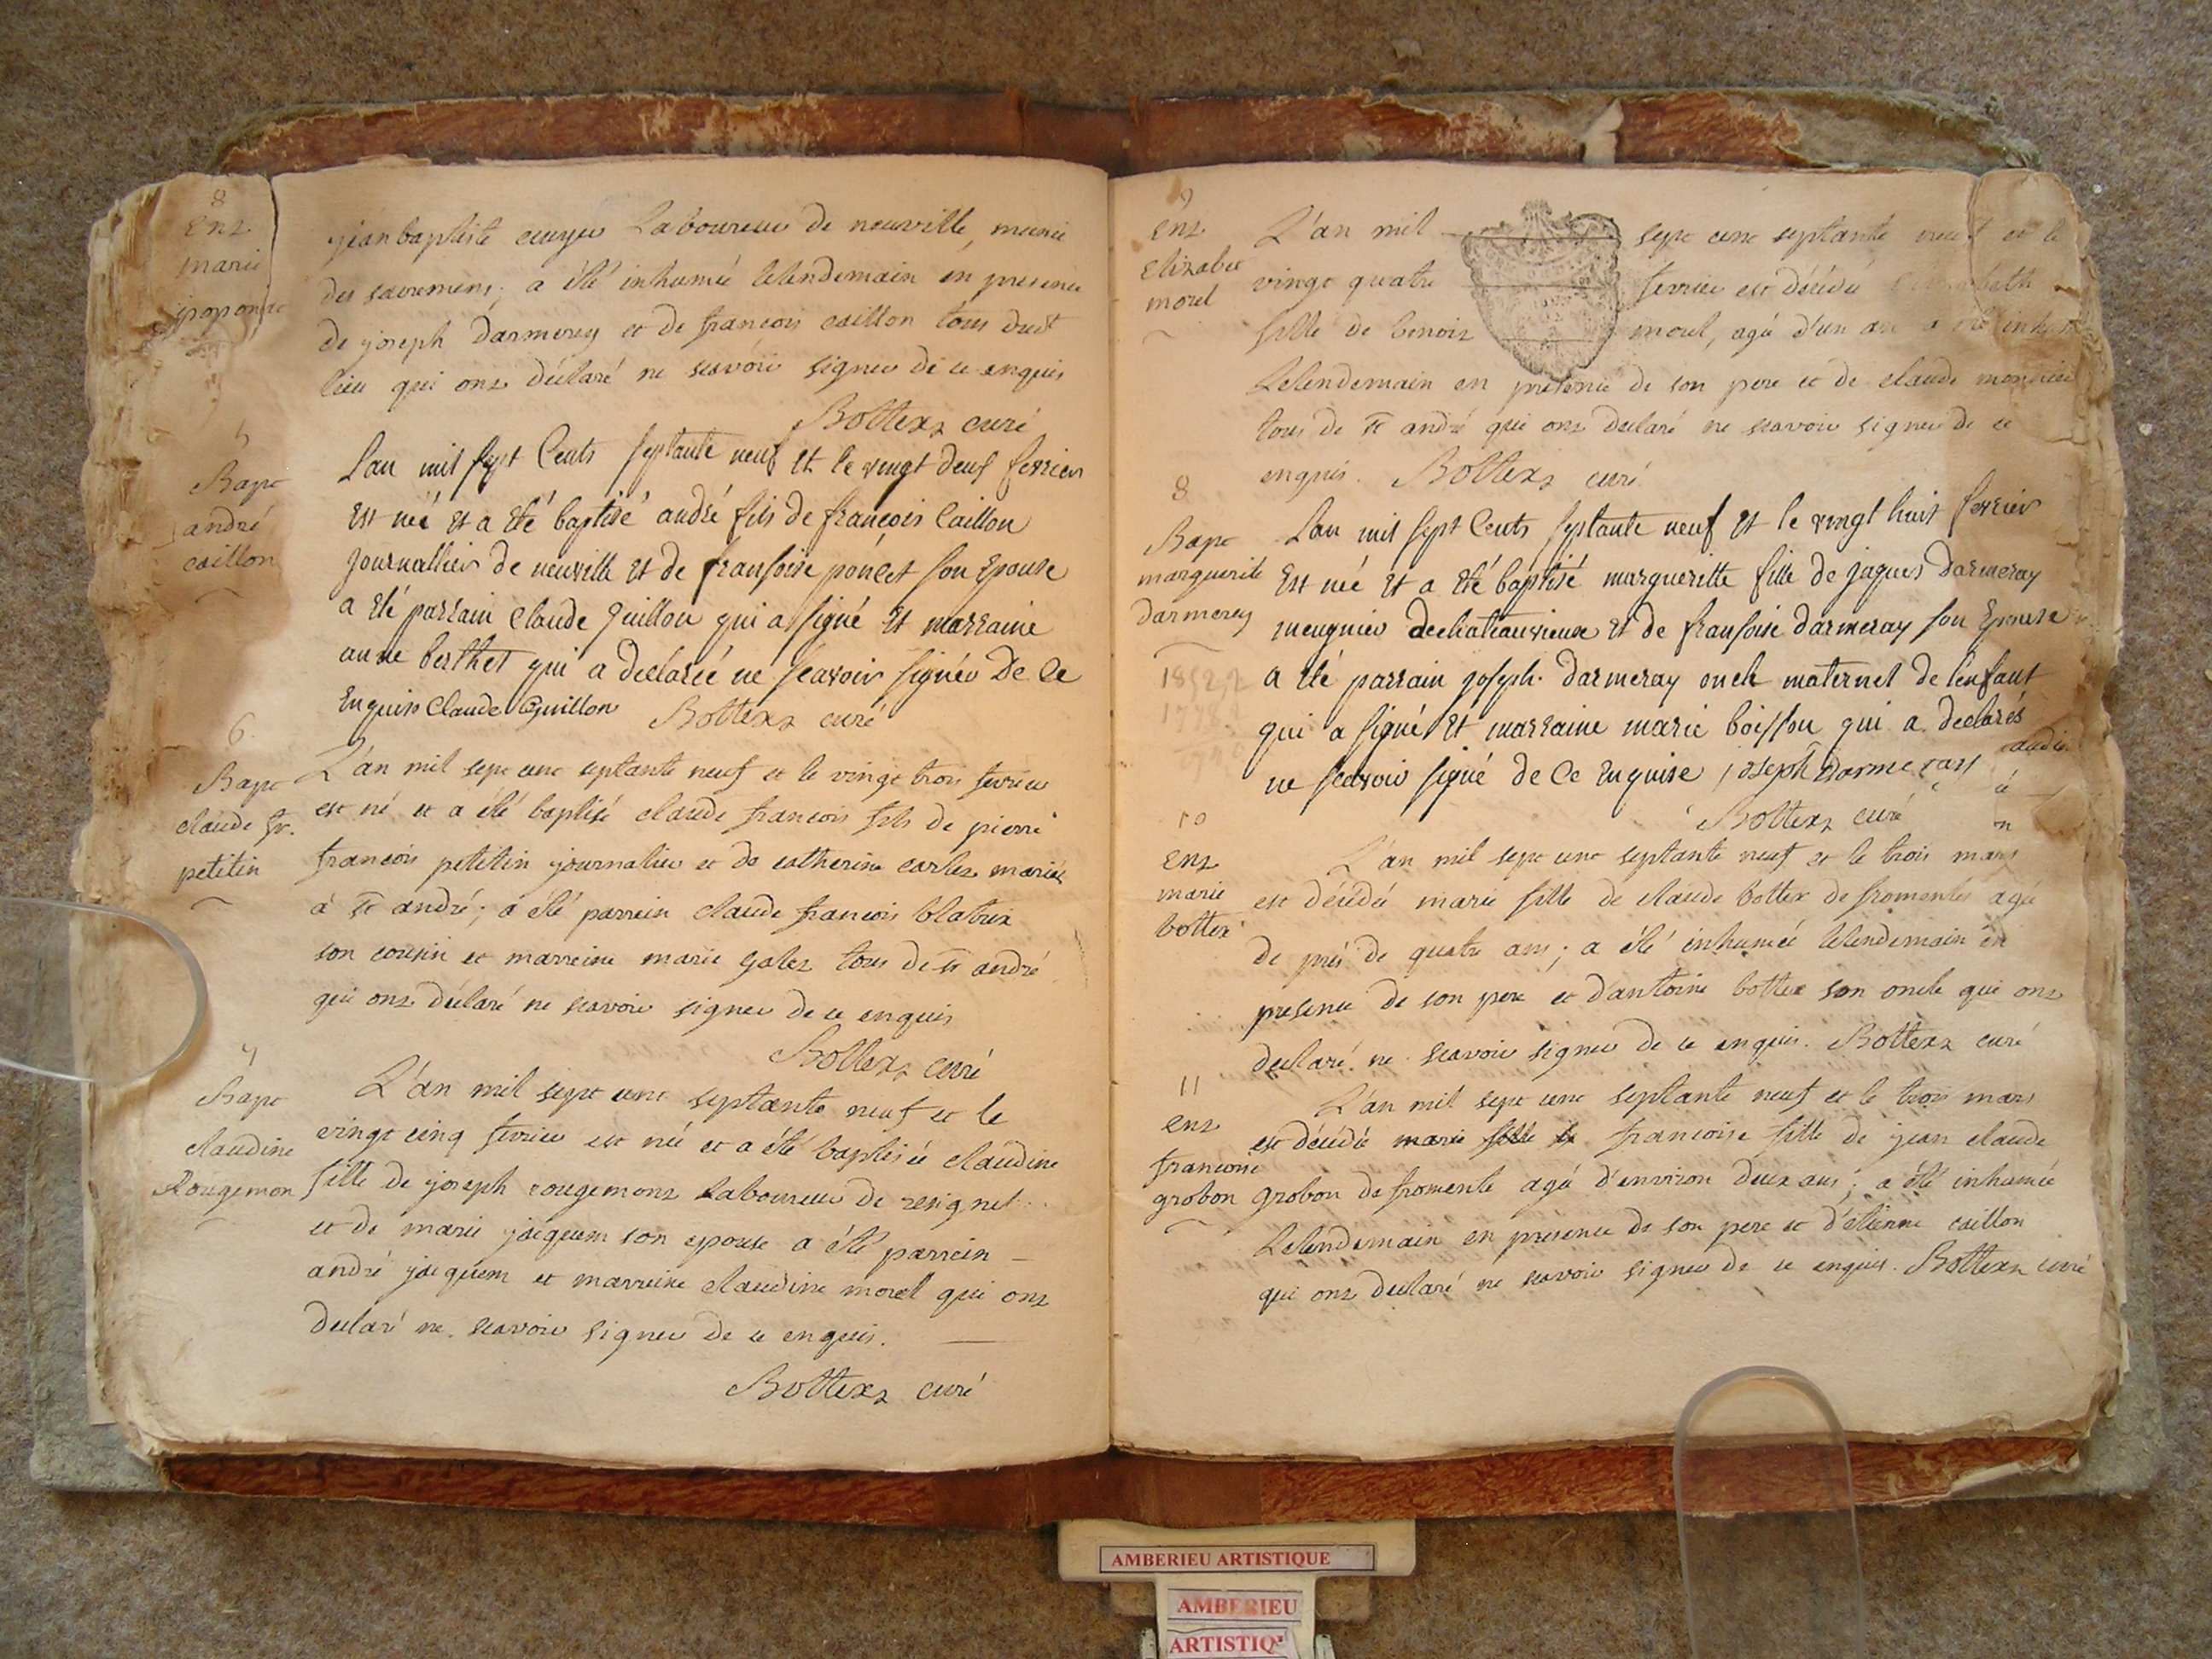 8
Ent
marie
popon
jean baptiste cuyer Laboureur de neuville, munie
des sacremens; a été inhumée lelendemain en presence
de joseph Darmerey et de francois caillon tous dudt
lieu qui ont déclaré ne scavoir signer de ce enquis
Bottexz curé
5
Bapt
andré
caillon
Lan mil sept Cents septante neuf et le vingt deuf fevrier
Est néé et a été baptisé andré fils de françois Caillon
Journallier de neuville et de fransoise poncet son Epouse
a été parrain Claude Guillon qui a signé et marraine
anne berthet qui a declarée ne scavoir signér De Ce
Enquis Claude Guillon Bottexz curé
6
Bapt
claude fr.
petitin
L'an mil sept cent septante neuf et le vingt trois fevrier
est né et a été baptisé claude francois fils de pierre
francois petitin journalier et de catherine carlez mariés
à st andré; a été parrein claude francois blatrix
son cousin et marreine marie galez tous de st andré
qui ont déclaré ne scavoir signer de ce enquis
Bottexz curé
7
Bapt
claudine
Rougemon
L'an mil sept cent septante neuf et le
vingt cinq fevrier est née et a été baptisée claudine
fille de joseph rougemont Laboureur de resignel
et de marie jacquem son epouse a été parrein
andré jacquem et marreine claudine morel qui ont
declaré ne scavoir signer de ce enquis.
Bottexz curé
9
Ent
Elizabet
morel
L'an mil sept cent septante neuf et le
vingt quatre fevrier est décédée
fille de benoit morel, agée d'un an a été
Lelendemain en présence de son pere et de claude
tous de st andré qui ont declaré ne scavoir signer de ce
enquis. Bottexz curé
8
Bapt
marguerite
darmerey
Lan mil sept Cents septante neuf et le vingt huit fevrier
Est néé et a été baptisé margueritte fille de jaques darmeray
meugnier dechateauvieux et de fransoise darmeray son Epouse
a été parrain joseph darmeray oncle maternel de lenfant
qui a signé et marraine marie boisson qui a declarés
ne scavoir signé de Ce enquise joseph Darmeray
Bottexz curé
10
Ent
marie
bottex
L'an mil sept cent septante neuf et le trois mars
est décédée marie fille de claude bottex de fromentes agée
de près de quatre ans; a été inhumée lelendemain en
presence de son pere et d'antoine bottex son oncle qui ont
declaré ne scavoir signer de ce enquis. Bottexz curé
11
Ent
francoise
grobon
L'an mil sept cent septante neuf et le trois mars
est décédée marie fille de francoise fille de jean claude
grobon de fromente agée d'environ deux ans; a été inhumée
Lelendemain en presence de son pere et d'étienne caillon
qui ont declaré ne scavoir signer de ce enquis. Bottexz curé
AMBERIEU ARTISTIQUE
AMBERIEU
ARTISTIQ